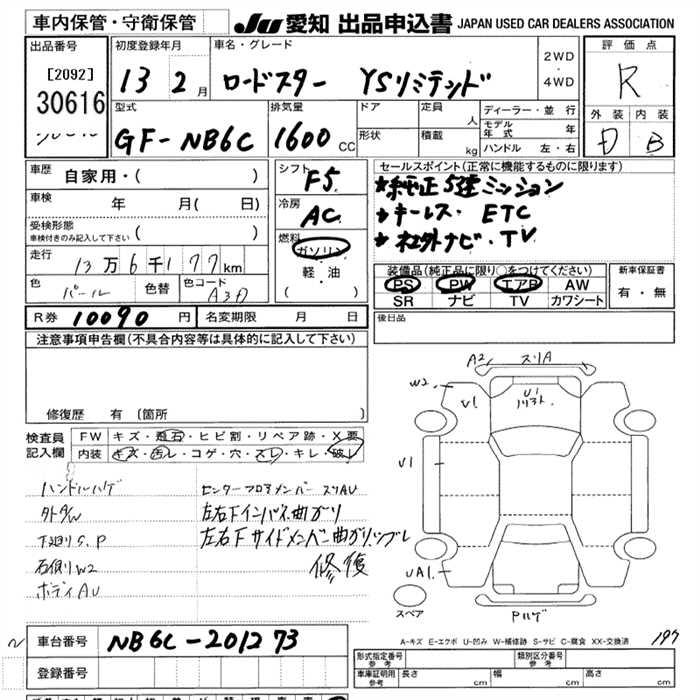 車内保管・守衛保管
JU 愛知 出品申込書 JAPAN USED CAR DEALERS ASSOCIATION
出品番号
[2092]
30616
初度登録年月
13 2月
車名・グレード
ロードスター YSリミテッド
2WD
・
4WD
評価点
R
外装 内装
D B
型式
GF-NB6C
排気量
1600 CC
ドア
定員
人
形状
積載
kg
ディーラー・並行
モデル年式 年
ハンドル 左・右
車歴
自家用・( )
車検
年 月( 日)
受検形態
車検付きのみ記入して下さい ( )
走行
13万6千177km
色
パール
色替
色コード
A3D
シフト
F5
冷房
AC
燃料
ガソリン
・
軽・油
( )
セールスポイント(正常に機能するものに限ります)
★純正5速ミッション
★キーレス・ETC
★社外ナビ・TV
装備品(純正品に限り○をつけてください)
PS PW エアB AW
SR ナビ TV カワシート
新車保証書
有・無
R券 10090円
名変期限 月 日
後日品
注意事項申告欄(不具合内容等は具体的に記入して下さい)
修復歴 有 〔箇所
検査員記入欄
FW キズ・飛石・ヒビ割・リペア跡・X要
内装 キズ・汚レ・コゲ・穴・スレ・キレ・破レ
ハンドルハゲ
下廻りS.P
ボディAU
センターフロアメンバースリAU
左右下インパネ曲ガリ
左右下サイドメンバー曲ガリ、ツブレ
修復
A2
スリA
W2
U1
U1
U1
UA1
Pハゲ
スペア
A-キズ E-エクボ U-凹み W-補修跡 S-サビ C-腐食 XX-交換済
197
車台番号 NB6C-201273
登録番号
形式指定番号
参考
類別区分番号
参考
車庫証明用
参考
長さ cm
幅 cm
高さ cm